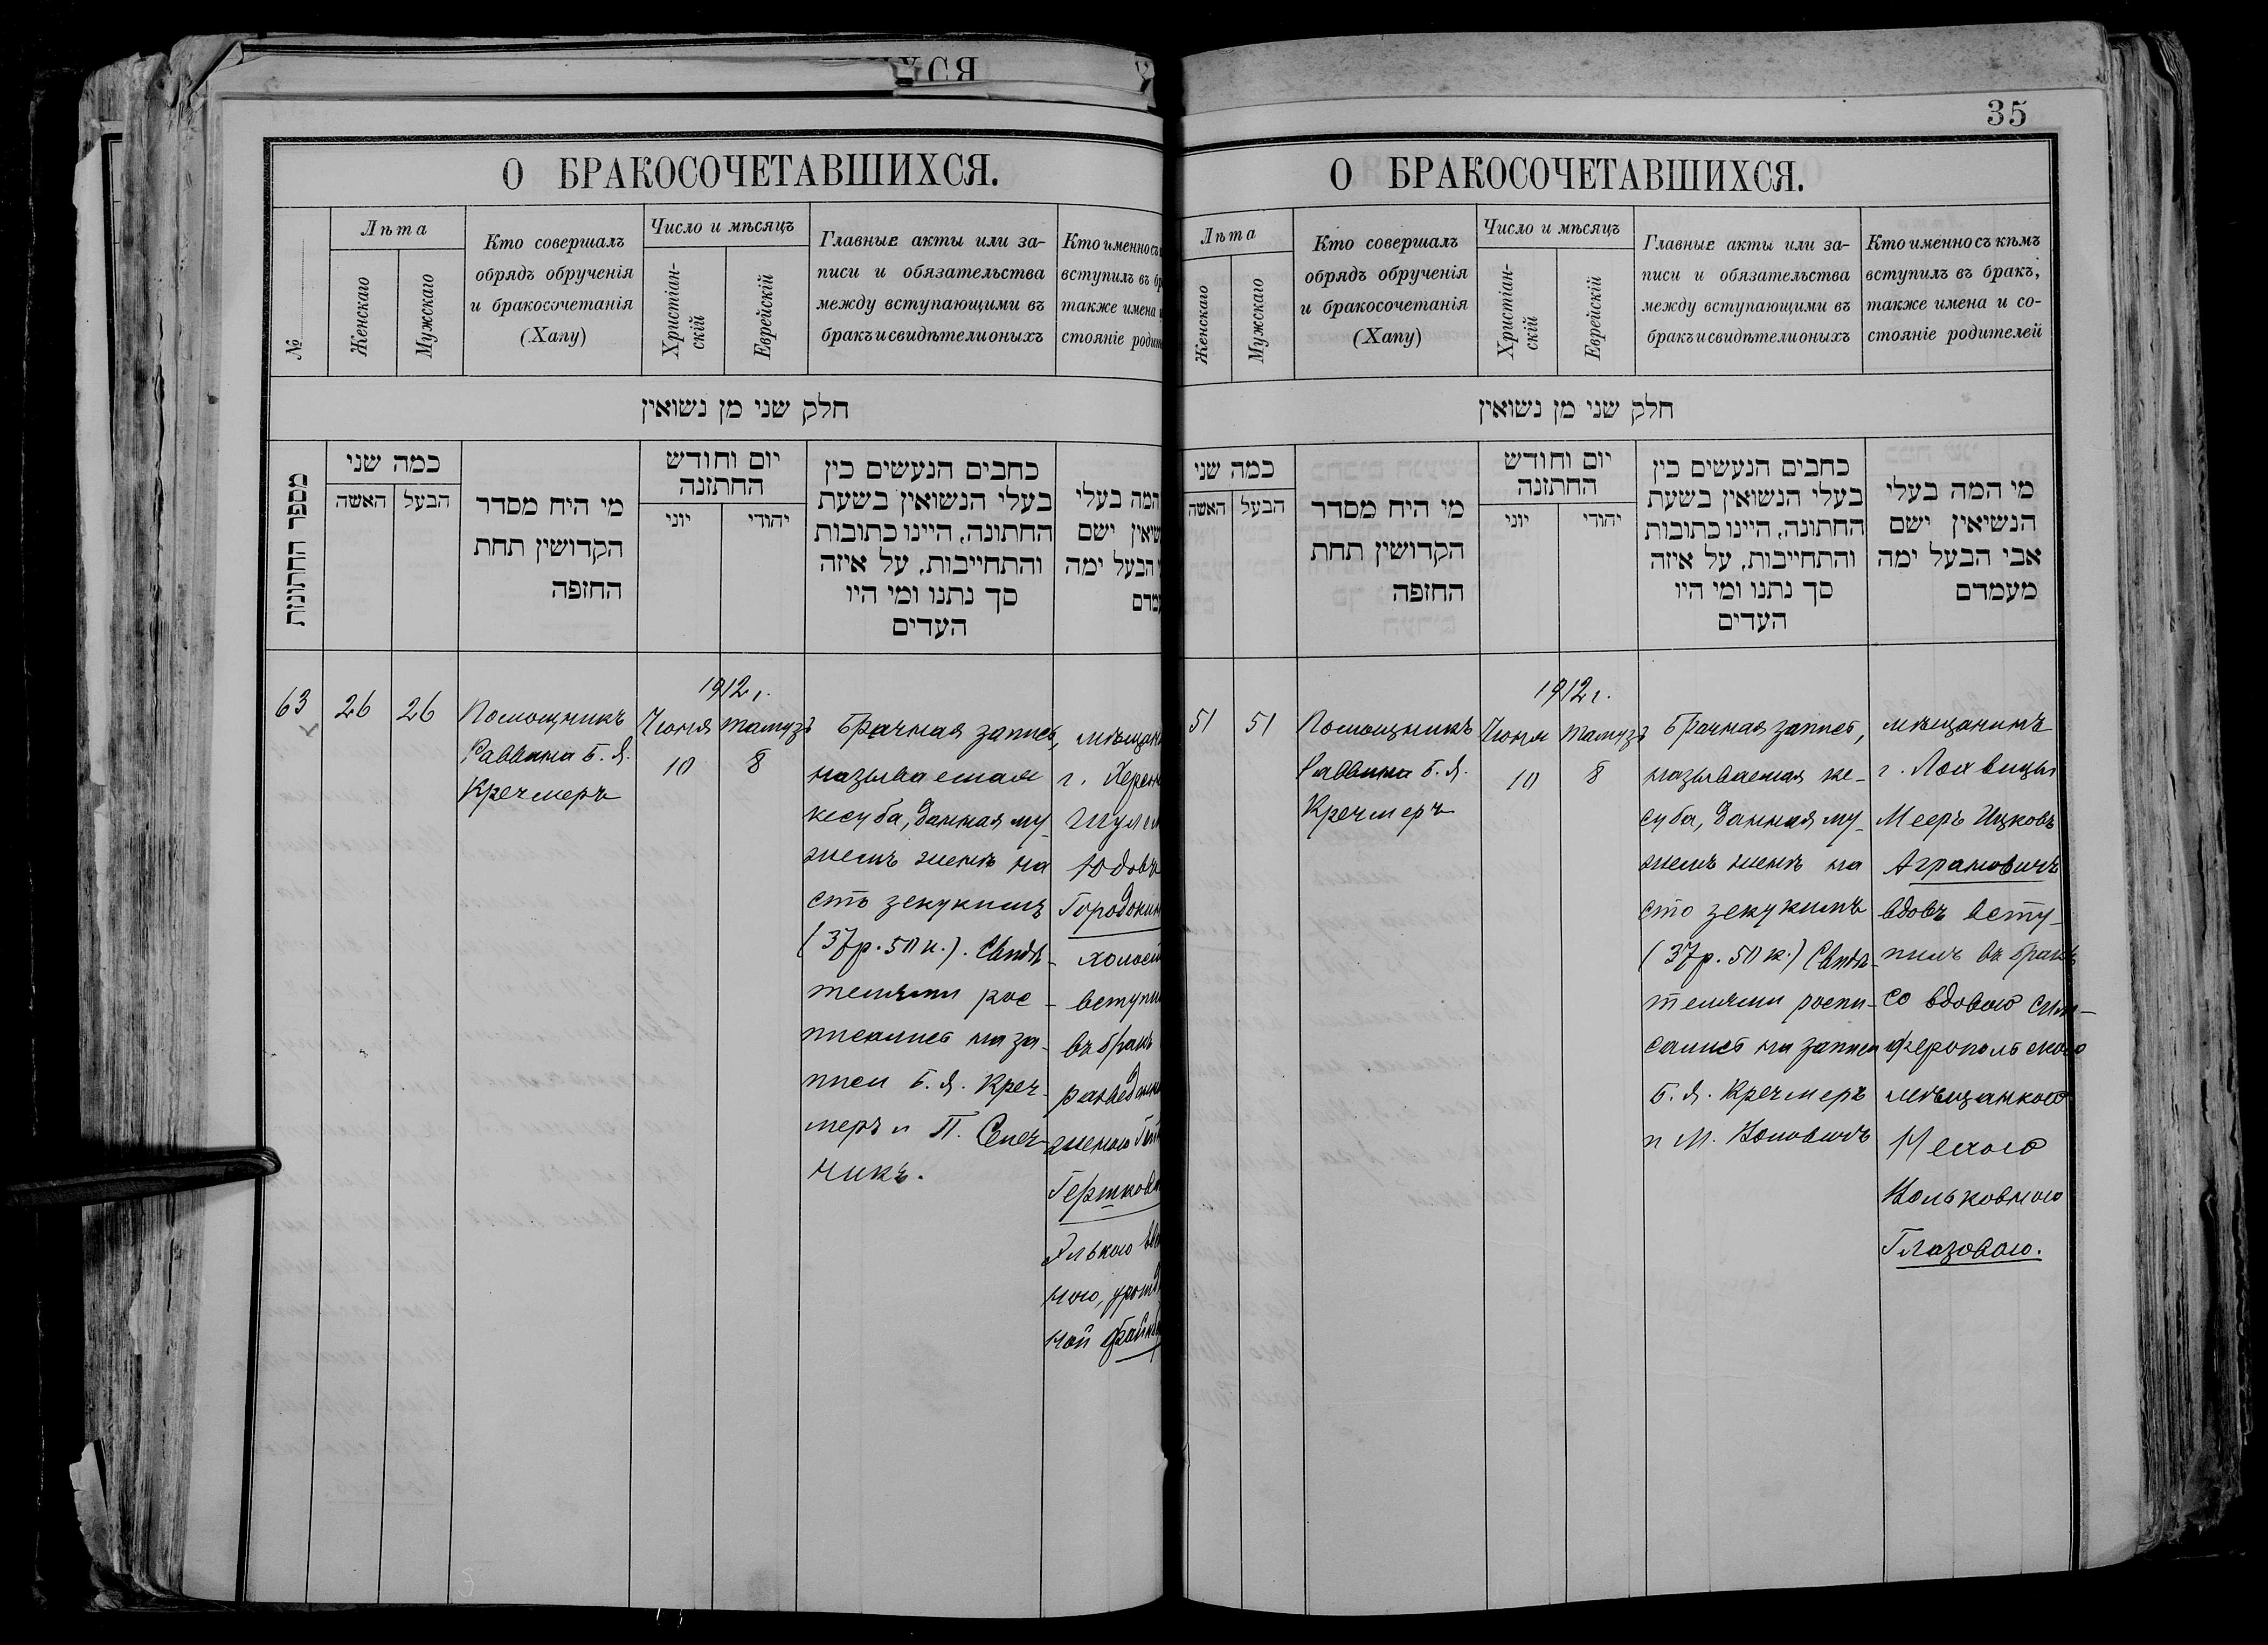 О БРАКОСОЧЕТАВШИХСЯ.
№
Лѣта
Женскаго
Мужскаго
Кто совершалъ
обрядъ обрученія
и бракосочетанія
(Хапу)
Число и мѣсяцъ
Христіан-
скій
Еврейскій
Главные акты или за-
писи и обязательства
между вступающими въ
бракъ и свидѣтели оныхъ
Кто именно съ
вступилъ въ бр
также имена и
стояніе родит
חלק שני מן נשואין
מספר החתונות
כמה שני
האשה
הבעל
מי היח מסדר
הקדושין תחת
החזפה
יום וחודש
החתזנה
יוני
יהודי
כחבים הנעשים כין
בעלי הנשואין בשעת
החתונה, היינו כתובות
והתחייבות, על איזה
סך נתנו ומי היו
העדים
המה בעלי
שיאין ישם
הבעל ימה
עמדם
63
26
26
Помощникъ
Раввина Б. Я.
Кречмеръ
1912 г.
Іюня
10
Тамузъ
8
Брачная запись,
называемая
кесуба, данная му-
жемъ женѣ на
сто зекукимъ
(37 р. 50 к.). Свидѣ-
телями рос-
писались на за-
писи Б. Я. Креч-
меръ и П. Спек-
чикъ.
мѣщан
г. Херсон
Шулем
Юдовъ
Городокин
холост
вступи
въ бракъ
разведен
женою
Гершков
Элькою
ною, урожд
ной Файн
35
О БРАКОСОЧЕТАВШИХСЯ.
Лѣта
Женскаго
Мужскаго
Кто совершалъ
обрядъ обрученія
и бракосочетанія
(Хапу)
Число и мѣсяцъ
Христіан-
скій
Еврейскій
Главные акты или за-
писи и обязательства
между вступающими въ
бракъ и свидѣтели оныхъ
Кто именно съ кѣмъ
вступилъ въ бракъ,
также имена и со-
стояніе родителей
חלק שני מן נשואין
כמה שני
האשה
הבעל
מי היח מסדר
הקדושין תחת
החזפה
יום וחודש
החתזנה
יוני
יהודי
כחבים הנעשים כין
בעלי הנשואין בשעת
החתונה, היינו כתובות
והתחייבות, על איזה
סך נתנו ומי היו
העדים
מי המה בעלי
הנשיאין ישם
אבי הבעל ימה
מעמדם
51
51
Помощникъ
Раввина Б. Я.
Кречмеръ
1912 г.
Іюня
10
Тамузъ
8
Брачная запись,
называемая ке-
суба, данная му-
жемъ женѣ на
сто зекукимъ
(37 р. 50 к.) Свидѣ-
телями роспи-
сались на записи
Б. Я. Кречмеръ
и М. Коповичъ
мѣщанинъ
г. Лохвицы
Мееръ Ицковъ
Аграновичъ
вдовъ всту-
пилъ въ бракъ
со вдовою Сим-
феропольскою
мѣщанкою
Нехою
Копьковною
Глазовою.